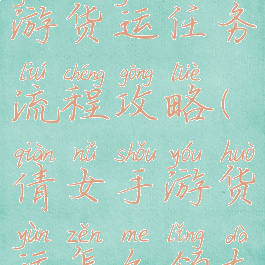 游货运任务
liú chéng gōng lüè
流程攻略(
qiàn nǚ shǒu yóu huò
倩女手游货
yùn zěn me lǐng dà
运怎么领大